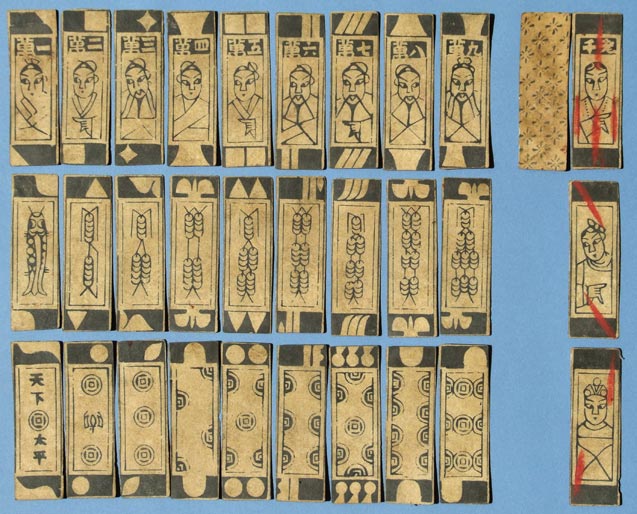 一萬
二萬
三萬
四萬
五萬
六萬
七萬
八萬
九萬
天下
太平